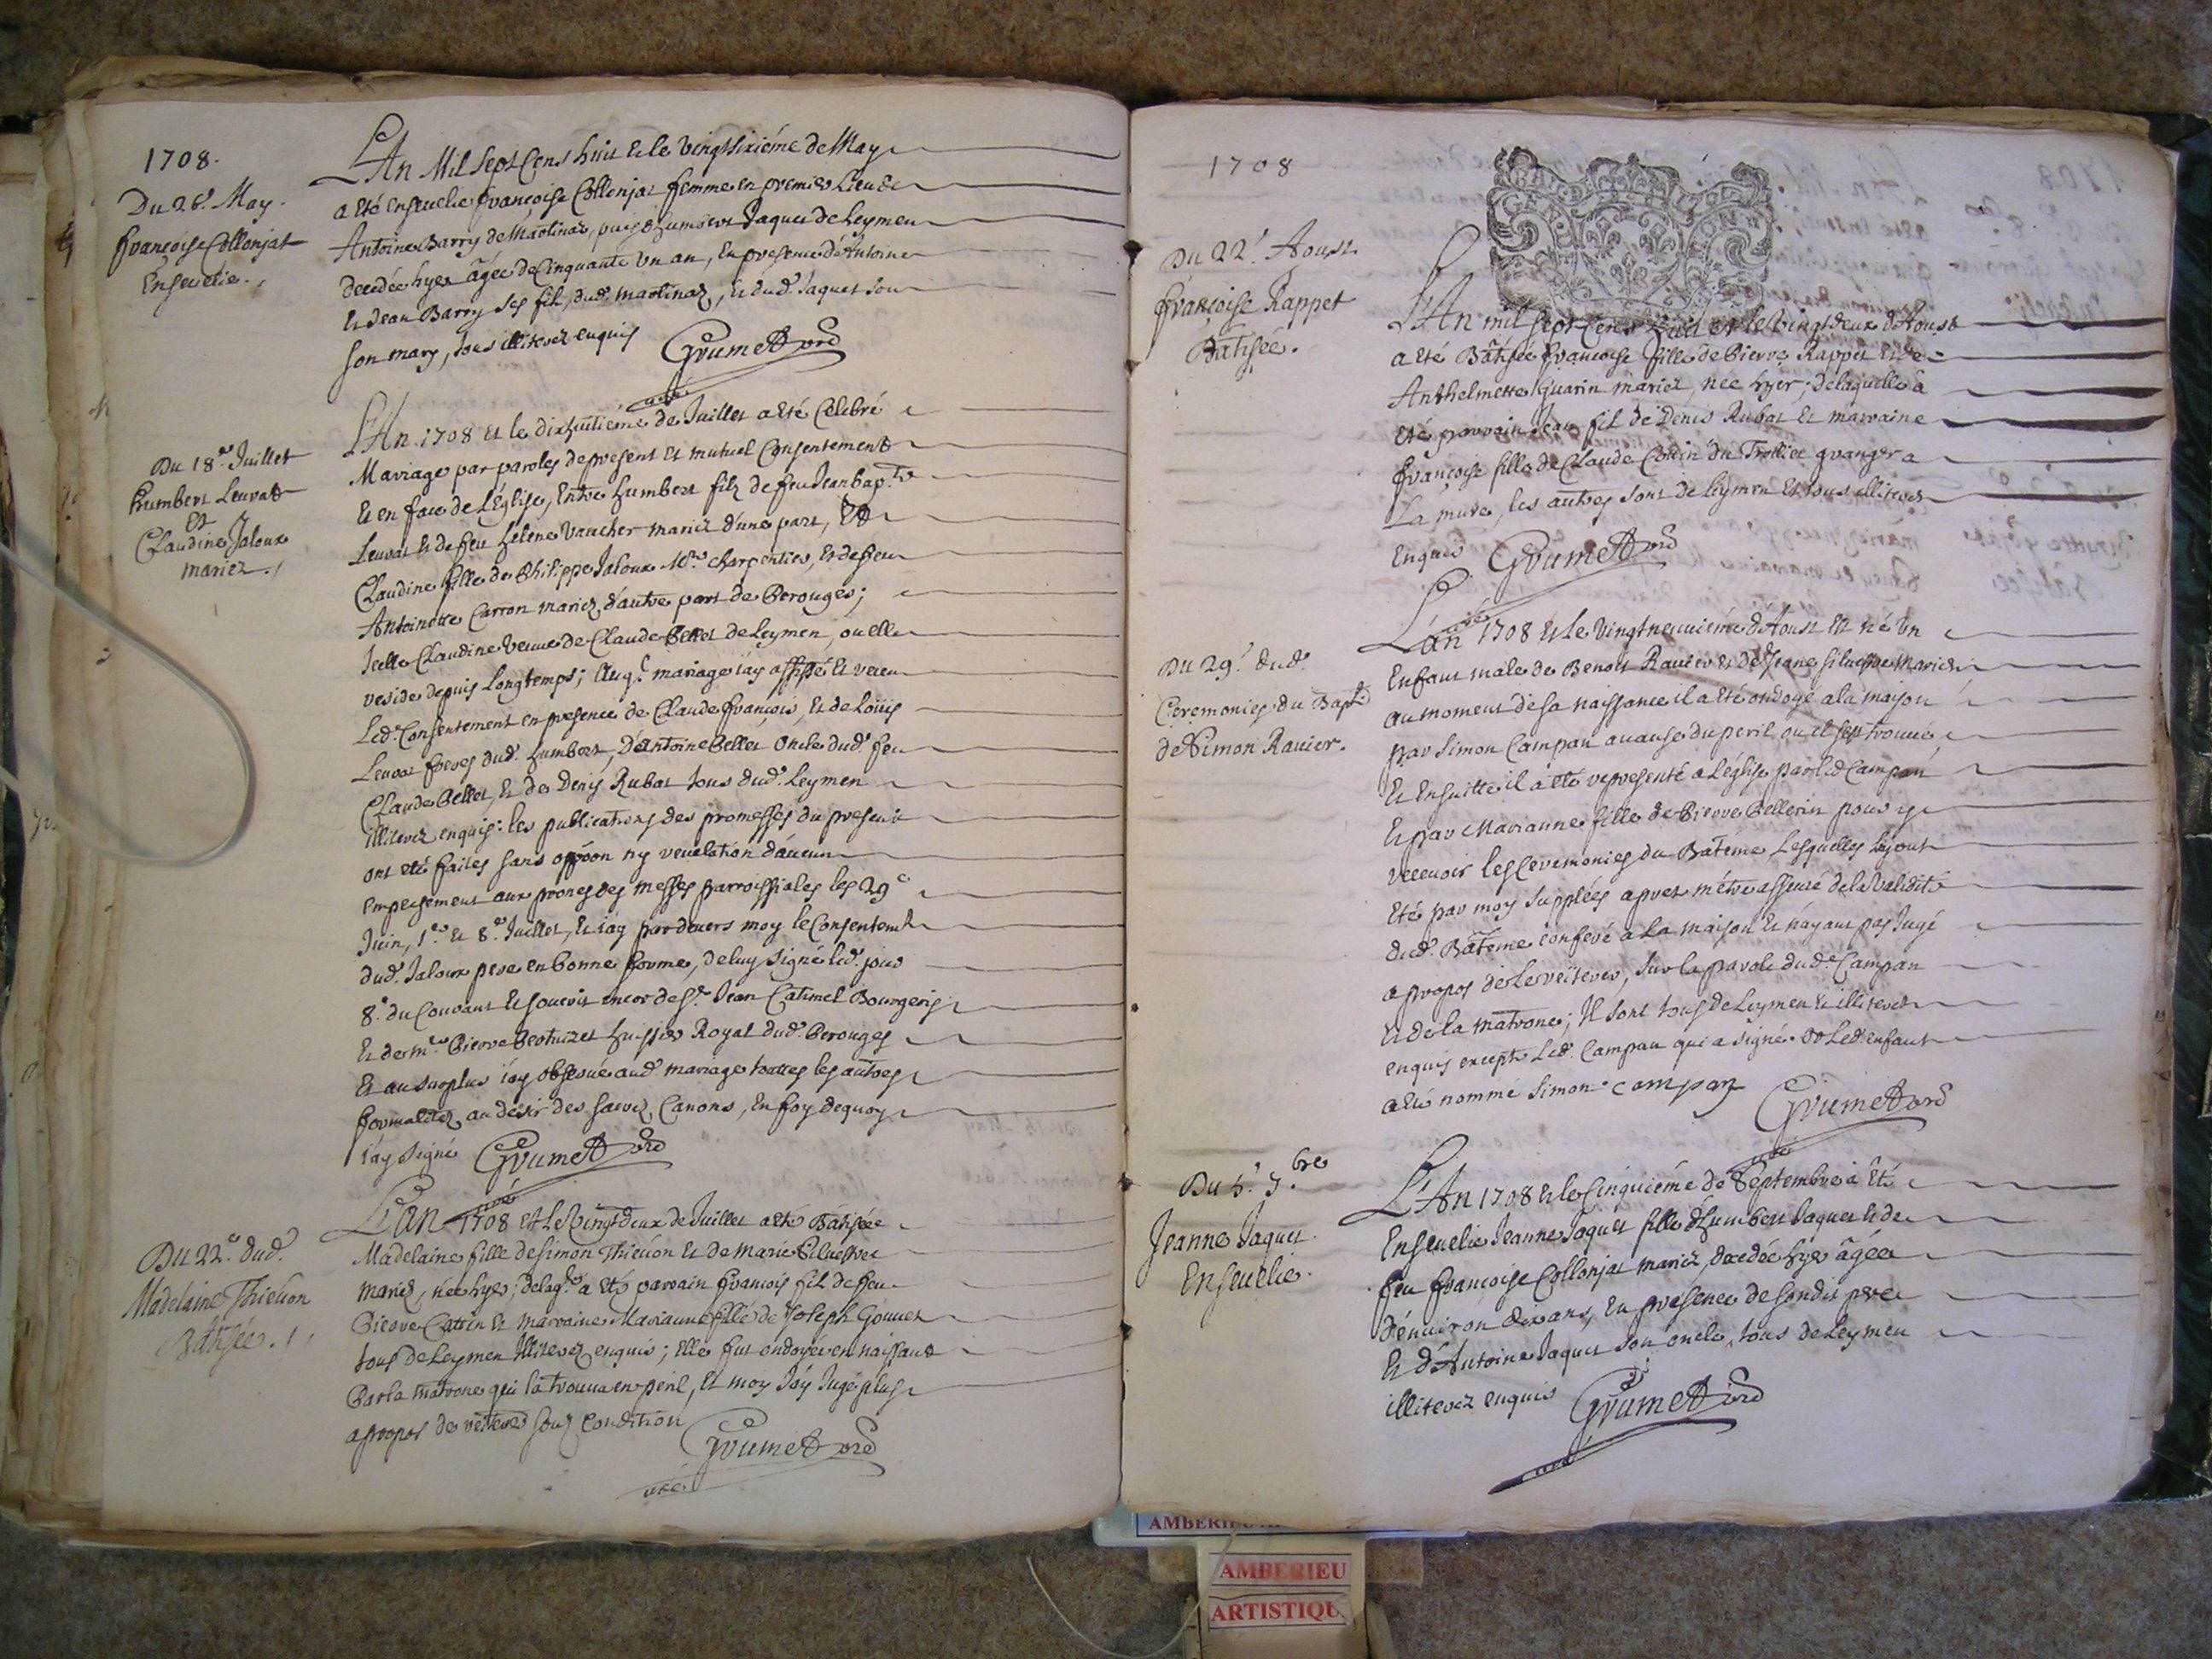 1708.
Du 26e. May.
françoise Collonjat
Enseuelie.
L'An Mil Sept Cens huit et le vingtsixiéme de May
a été enseuelie françoise Collonjat femme en premier Lieu de
Antoine Barry de Martinaz, puis d'humbert Jaquet de Leymen
decedée hyer âgée de Cinquante un an, en presence d'Antoine
et Jean Barry ses fils, dud. Martinaz, et dud. Jaquet son
son mary, tous illiterez enquis
Grumet ord
uxé
Du 18e. Juillet
humbert Leuvat
Et
Claudine Jaloux
mariez.
L'An 1708 et le dixhuitiéme de Juillet a été Celebré
Mariage par paroles de present et mutuel Consentement
Et en face de L'église, Entre humbert filz de feu Jean bap.te
Leuvat et de feu helene Vaucher mariez d'une part, Et
Claudine fille de Philippe Jaloux Me. charpentier, et de feu
Antoinette Carron mariez d'autre part de Perouges;
Icelle Claudine veuue de Claude Bellet de Leymen, ou elle
reside depuis Longtemps; Auql. mariage i'ay assisté et receu
Led. Consentement en presence de Claude françois, et de Loüis
Leuvat freres dud. humbert, d'Antoine Bellet oncle dud. feu
Claude Bellet, et de Denis Rubat tous dud. Leymen
illiterez enquis: les publications des promesses du present
ont été faites sans oppôon ny reuelation d'aucun
empeschement aux prones des messes parroissiales les 29e
Juin, 1er. et 8e. Juillet, et i'ay par devers moy le Consentemt
dud. Jaloux pere en bonne forme, de luy signé led. jour
8e. du Courant et souscrit encor de Sr. Jean Catimel Bourgeois
et de me. Pierre Berthizet huissier Royal dud. Perouges
Et au surplus i'ay obserué aud. mariage toutes les autres
formalitez au desir des sacrez Canons, en foy dequoy
i'ay signé
Grumet ord
uxé
Du 22e. dud.
Madelaine Thieuon
Batisée.
L'an 1708 et le vingtdeux de Juillet a été Batisée
Madelaine fille de Simon Thieuon et de Marie Siluestre
mariez, née hyer; delaqle. a été parrain françois fil de feu
Pierre Cattin et marraine Marianne fille de Joseph Gonnet
tous de Leymen illiterez enquis; elle fut ondoyée en naissant
Par la matrone qui la trouua en peril, et moy J'ay Jugé plus
apropos de reiterer souz condition
Grumet ord
uxé
1708
Du 22e. Aoust
françoise Rappet
Batisée.
L'An mil sept Cens huit et le vingtdeux d'Aoust
a été Bâtisée françoise fille de Pierre Rappet et de
Anthelmette Guarin mariez, née hyer; delaquelle a
été parrain Jean fil de Denis Rubat et marraine
françoise fille de Claude Couin du Trollier granger a
La mure, les autres sont de Leymen et tous illiterez
enquis
Grumet ord
uxé
Du 29e. dud.
Ceremonies du Bapte.
de Simon Rauier.
L'an 1708 et le vingtneuuiéme d'Aoust est né un
enfant male de Benoit Rauier et de Jeane Siluestre Mariez
au moment de sa naissance il a été ondoyé a la maison
par Simon Campan a cause du peril ou il s'est trouué
et ensuitte il a été representé a L'église par led Campan
Et par Marianne fille de Pierre Pellerin pour y
receuoir les Ceremonies du Batême Lesquelles luy ont
été par moy supplées apres m'étre asseuré de la validité
dud. Batême conferé a la maison et n'ayant pas Jugé
apropos de Le reiterer, sur la parole dud. Campan
et de la matrone; Il sont tous de Leymen et illiterez
enquis excepté Led. Campan qui a signé et Led. enfant
a été nommé Simon. campan
Grumet ord
uxé
Du 5e. 7.bre
Jeanne Jaquet.
Enseuelie.
L'An 1708 et le Cinquiéme de Septembre a êté
Enseuelie Jeanne Jaquet fille d'humbert Jaquet et de
feu françoise Collonjat mariez, decedée hyer âgée
d'enuiron dix ans, en presence de sondit pere
et d'Antoine Jaquet son oncle, tous de Leymen
illiterez enquis
Grumet ord
uxé
AMBERIEU
AMBERIEU
ARTISTIQU